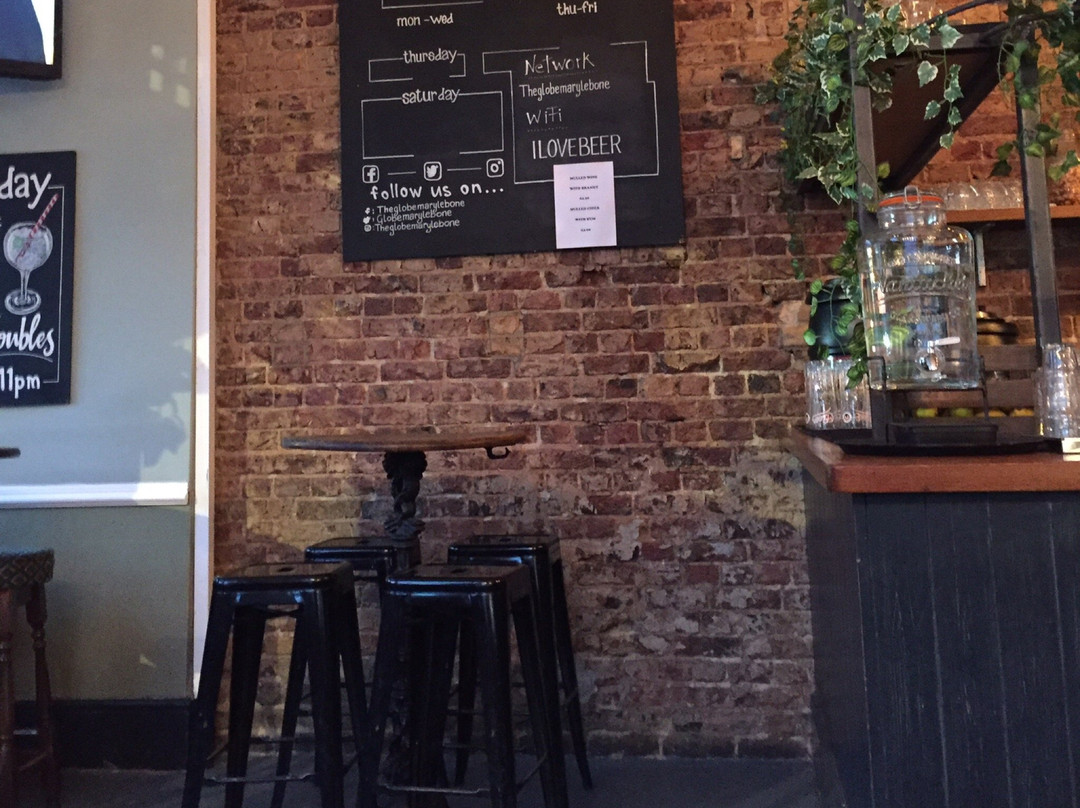 mon-wed
thu-fri
thursday
saturday
Network
Theglobemarylebone
WiFi
ILOVEBEER
follow us on...
: Theglobemarylebone
: Globemarylebone
: Theglobemarylebone
MULLED WINE
WITH BRANDY
MULLED CIDER
WITH RUM
day
oubles
11pm